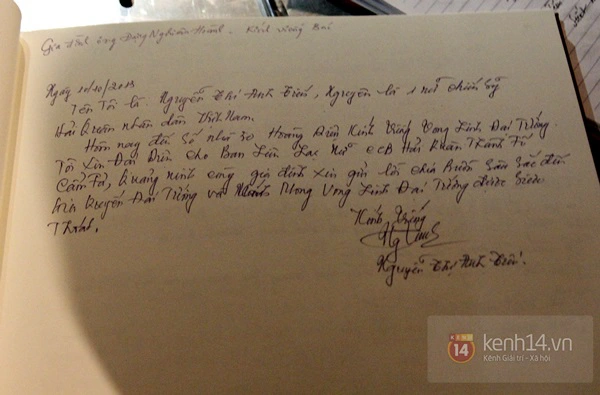 Gia đình ông Đặng Nghiêm Hoành - Kính viếng Bác
Ngày 10/10/2013
Tên Tôi là: Nguyễn Thị Anh Tiến, Nguyên là 1 nữ chiến sỹ
Hải Quân nhân dân Việt Nam.
Hôm nay đến Số nhà 30 Hoàng Diệu Kính Viếng Vong Linh Đại Tướng.
Tôi Xin Đại Diện cho Ban Liên Lạc Nữ CCB Hải Quân Thành Fố
Cẩm Fả, Quảng ninh cùng gia đình xin gửi lời chia Buồn Sâu Sắc đến
Gia Quyến Đại Tướng và Mong Vong Linh Đại Tướng được Siêu
Thoát.
Kính Viếng
Nguyễn Thị Anh Tiến.
KENH 14
kenh14.vn
Kênh Giải trí - Xã hội